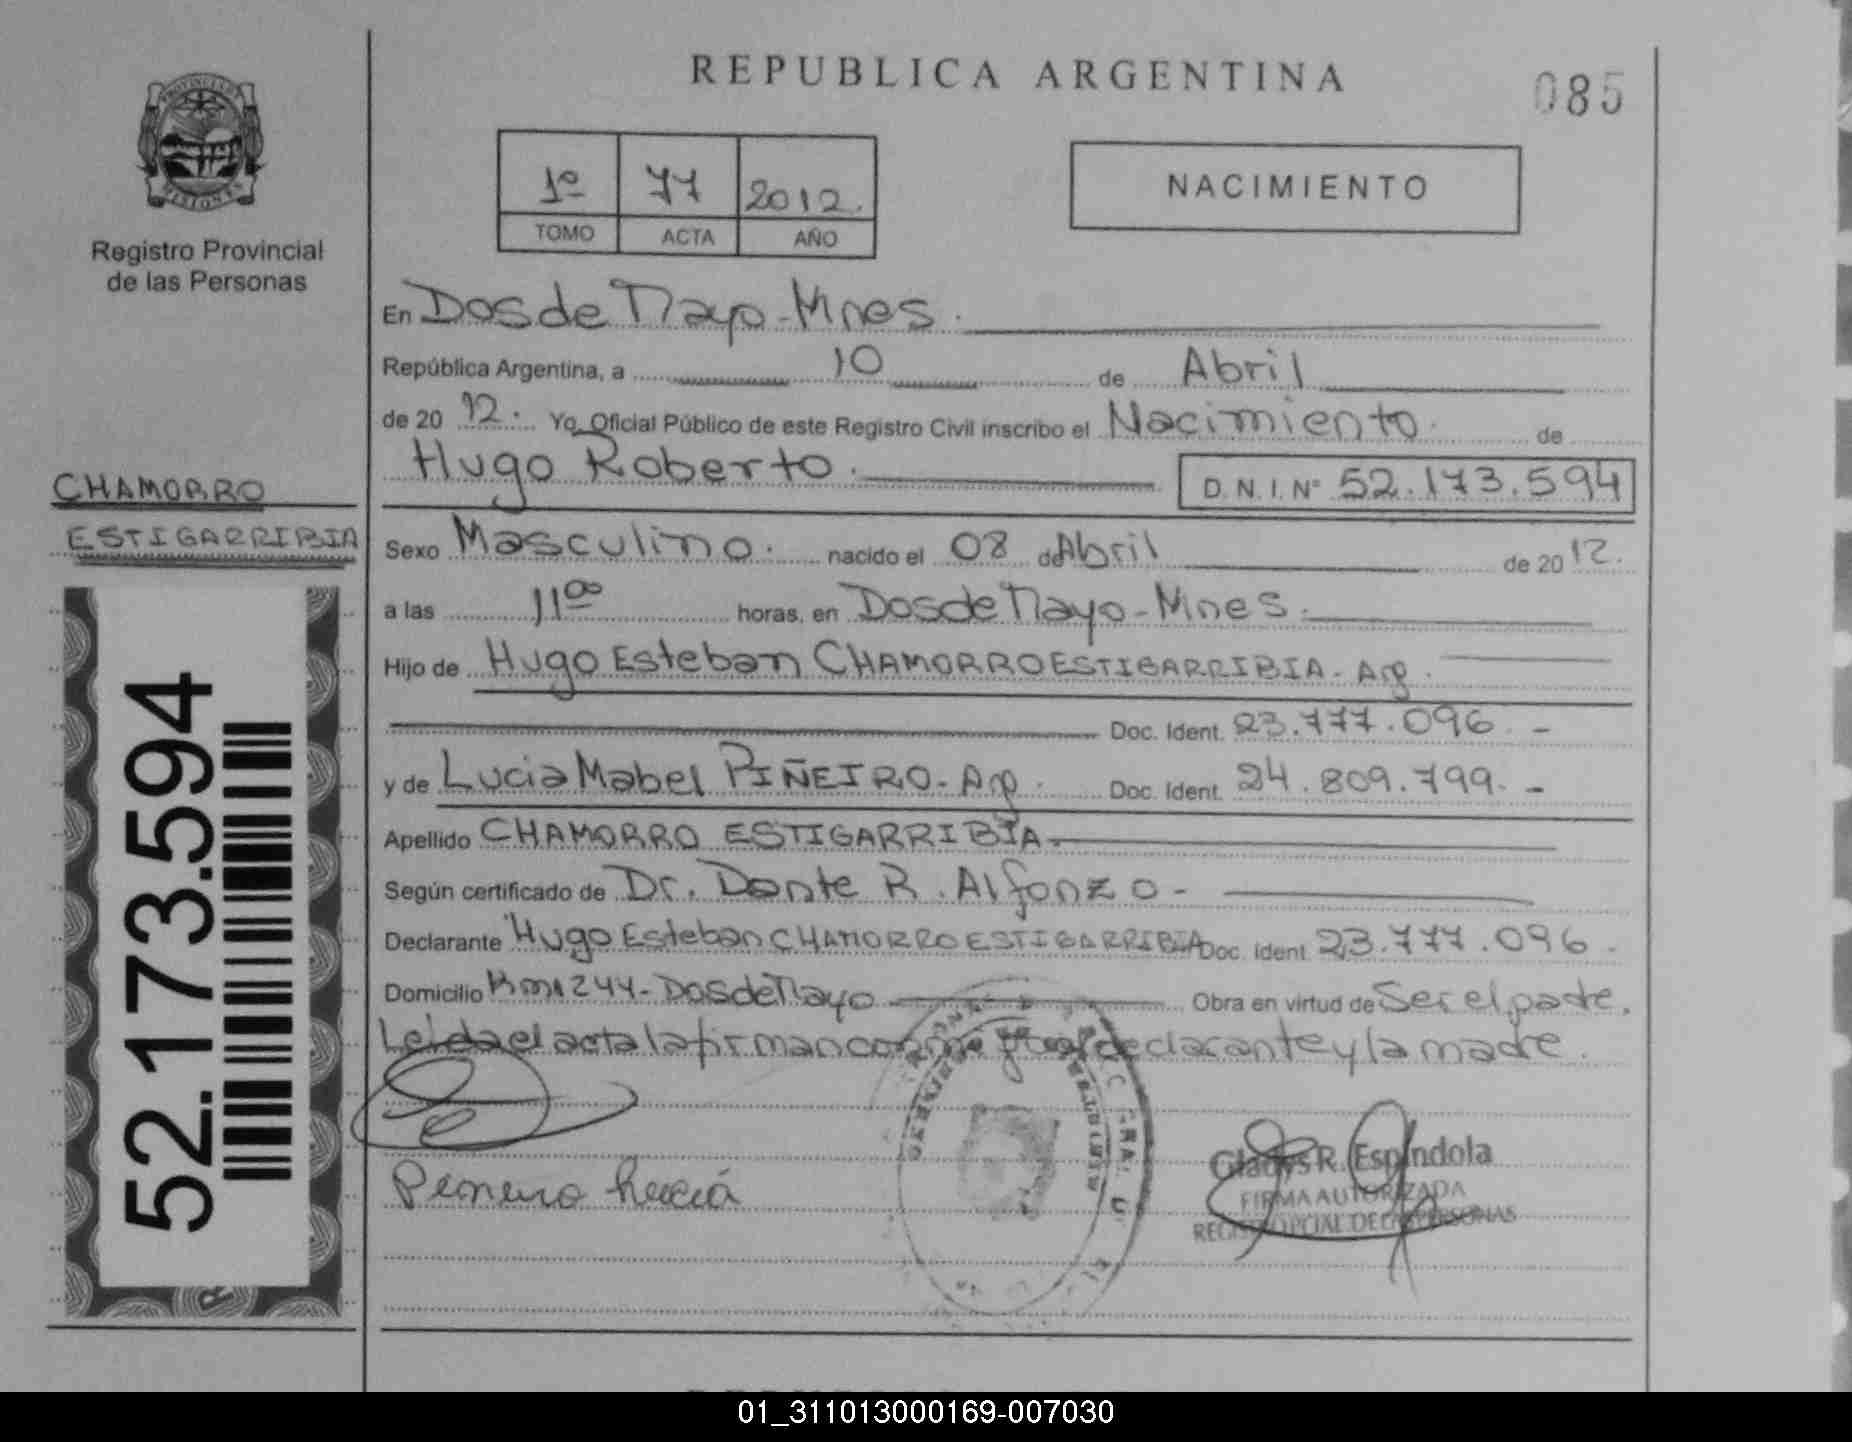 REPUBLICA ARGENTINA
085
PROVINCIA DE MISIONES
Registro Provincial
de las Personas
1º 77 2012.
TOMO ACTA AÑO
NACIMIENTO
En Dos de Mayo - Mnes.
República Argentina, a 10 de Abril
de 20 12. Yo, Oficial Público de este Registro Civil inscribo el Nacimiento de
Hugo Roberto. D. N. I. Nº 52.173.594
CHAMORRO
ESTIGARRIBIA
Sexo Masculino. nacido el 08 de Abril de 20 12.
a las 11⁰⁰ horas, en Dos de Mayo - Mnes.
Hijo de Hugo Esteban CHAMORRO ESTIGARRIBIA - Arg.
Doc. Ident. 23.777.096. -
y de Lucia Mabel PIÑEIRO - Arg. Doc. Ident. 24.809.799. -
Apellido CHAMORRO ESTIGARRIBIA
Según certificado de Dr. Dante R. Alfonzo -
Declarante Hugo Esteban CHAMORRO ESTIGARRIBIA Doc. Ident. 23.777.096.
Domicilio Km 1244 - Dos de Mayo Obra en virtud de Ser el padre.
Leida el acta la firman conmigo el declarante y la madre.
52.173.594
Gladys R. Espindola
FIRMA AUTORIZADA
REGISTRO PCIAL DE LAS PERSONAS
01_311013000169-007030